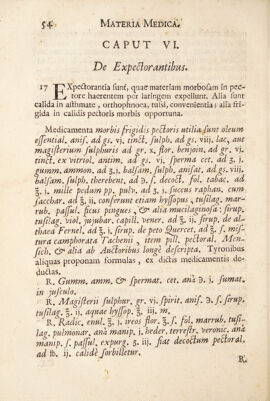 54 MATERIA MEDICA.
CAPUT VI.
De Expectorantibus.
17 EXpectorantia sunt, quae materiam morbosam in pec-
tore haerentem per laringem expellunt. Alia sunt
calida in asthmate, orthophnoea, tussi, convenientia; alia fri-
gida in calidis pectoris morbis opportuna.
Medicamenta morbis frigidis pectoris utilia sunt oleum
essential. anis. ad gs. vj. tinct. sulph. ad gs. viij. lac, aut
magisterium sulphuris ad gr. x. flor. benjoin. ad gr. vj.
tinct. ex vitriol. antim. ad gs. vj. sperma cet. ad ʒ. j.
gumm. ammon. ad ʒ. j. balsam. sulph. anisat. ad gs. viij.
balsam. sulph. therebent. ad ℈. s. decoct. fol. tabac. ad
℥. j. mille pedum pp. pulv. ad ℈. j. succus raphan. cum
sacchar. ad ℥. ij. conserv. etiam hyssopus, tussilag. mar-
rub. passul. ficus pingues, & alia mucilaginosa; sirup.
tussilag. viol. jujubar. capill. vener. ad ℥. ij. sirup. de al-
thaea Fernel. ad ℥. j. sirup. de peto Quercet. ad ℥. s. mis-
tura camphorata Tachenii, item pill. pectoral. Men-
sich. & alia ab Auctoribus longe descripta. Tyronibus
aliquas proponam formulas, ex dictis medicamentis de-
ductas.
R. Gumm. amm. & spermat. cet. ana ℈. j. sumat.
in jusculo.
R. Magisterii sulphur. gr. vj. spirit. anis. ℈. s. sirup.
tussilag. ℥. ij. aquae hyssop. ℥. iij. m.
R. Radic. enul. ℥. j. ireos flor. ℥. s. fol. marrub. tussi-
lag. pulmonar. ana manip. j. heder. terrestr. veronic. ana
manip. s. passul. expurg. ℥. iij. fiat decoctum pectoral.
ad ℔. ij. calide sorbilletur.
R.